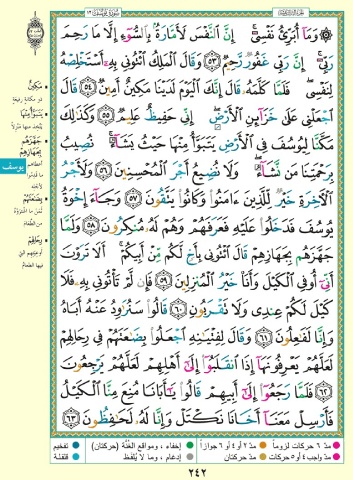 سُورَةُ يُوسُفَ ١٢
الجزء الثالث عشر
۞ وَمَا أُبَرِّئُ نَفْسِي ۚ إِنَّ النَّفْسَ لَأَمَّارَةٌ بِالسُّوءِ إِلَّا مَا رَحِمَ
رَبِّي ۚ إِنَّ رَبِّي غَفُورٌ رَّحِيمٌ ٥٣ وَقَالَ الْمَلِكُ ائْتُونِي بِهِ أَسْتَخْلِصْهُ
لِنَفْسِي ۖ فَلَمَّا كَلَّمَهُ قَالَ إِنَّكَ الْيَوْمَ لَدَيْنَا مَكِينٌ أَمِينٌ ٥٤ قَالَ
اجْعَلْنِي عَلَىٰ خَزَائِنِ الْأَرْضِ ۖ إِنِّي حَفِيظٌ عَلِيمٌ ٥٥ وَكَذَٰلِكَ
مَكَّنَّا لِيُوسُفَ فِي الْأَرْضِ يَتَبَوَّأُ مِنْهَا حَيْثُ يَشَاءُ ۚ نُصِيبُ
بِرَحْمَتِنَا مَن نَّشَاءُ ۖ وَلَا نُضِيعُ أَجْرَ الْمُحْسِنِينَ ٥٦ وَلَأَجْرُ
الْآخِرَةِ خَيْرٌ لِّلَّذِينَ ءَامَنُوا وَكَانُوا يَتَّقُونَ ٥٧ وَجَاءَ إِخْوَةُ
يُوسُفَ فَدَخَلُوا عَلَيْهِ فَعَرَفَهُمْ وَهُمْ لَهُ مُنكِرُونَ ٥٨ وَلَمَّا
جَهَّزَهُم بِجَهَازِهِمْ قَالَ ائْتُونِي بِأَخٍ لَّكُم مِّنْ أَبِيكُمْ ۚ أَلَا تَرَوْنَ
أَنِّي أُوفِي الْكَيْلَ وَأَنَا خَيْرُ الْمُنزِلِينَ ٥٩ فَإِن لَّمْ تَأْتُونِي بِهِ فَلَا
كَيْلَ لَكُمْ عِندِي وَلَا تَقْرَبُونِ ٦٠ قَالُوا سَنُرَاوِدُ عَنْهُ أَبَاهُ
وَإِنَّا لَفَاعِلُونَ ٦١ وَقَالَ لِفِتْيَانِهِ اجْعَلُوا بِضَاعَتَهُمْ فِي رِحَالِهِمْ
لَعَلَّهُمْ يَعْرِفُونَهَا إِذَا انقَلَبُوا إِلَىٰ أَهْلِهِمْ لَعَلَّهُمْ يَرْجِعُونَ
٦٢ فَلَمَّا رَجَعُوا إِلَىٰ أَبِيهِمْ قَالُوا يَا أَبَانَا مُنِعَ مِنَّا الْكَيْلُ
فَأَرْسِلْ مَعَنَا أَخَانَا نَكْتَلْ وَإِنَّا لَهُ لَحَافِظُونَ ٦٣
مَكِينٌ
ذو مكانة رفيعة
يَتَبَوَّأُ مِنْهَا
يتخذ منها منزلاً
يوسف
جَهَّزَهُم
بِجَهَازِهِمْ
بِضَاعَتَهُمْ
ثمن ما اشتروه
من الطعام
رِحَالِهِمْ
أوعيتهم التي
فيها الطعام
مدّ ٦ حركات لزوماً
مدّ ٢ أو ٤ أو ٦ جوازاً
إخفاء، ومواقع الغُنَّة (حركتان)
تفخيم
مدّ واجب ٤ أو ٥ حركات
مدّ حركتان
إدغام، وما لا يُلفظ
قلقلة
٢٤٢